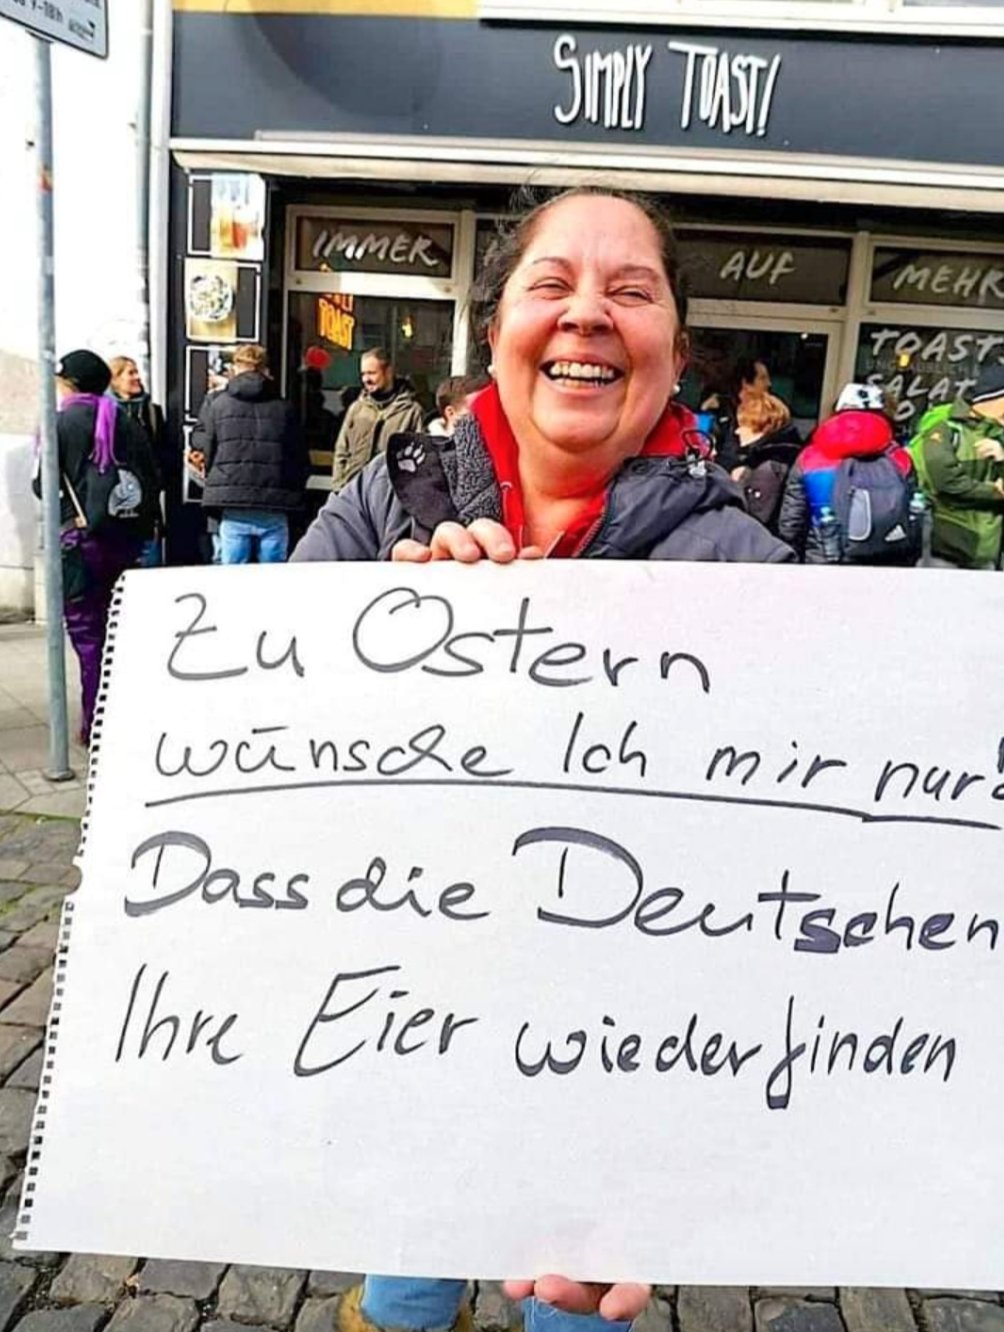 SIMPLY TOAST!
IMMER
AUF
MEHR
TOAST
SALAT
TOAST
Zu Ostern
wünsche Ich mir nur
Dass die Deutschen
Ihre Eier wiederfinden